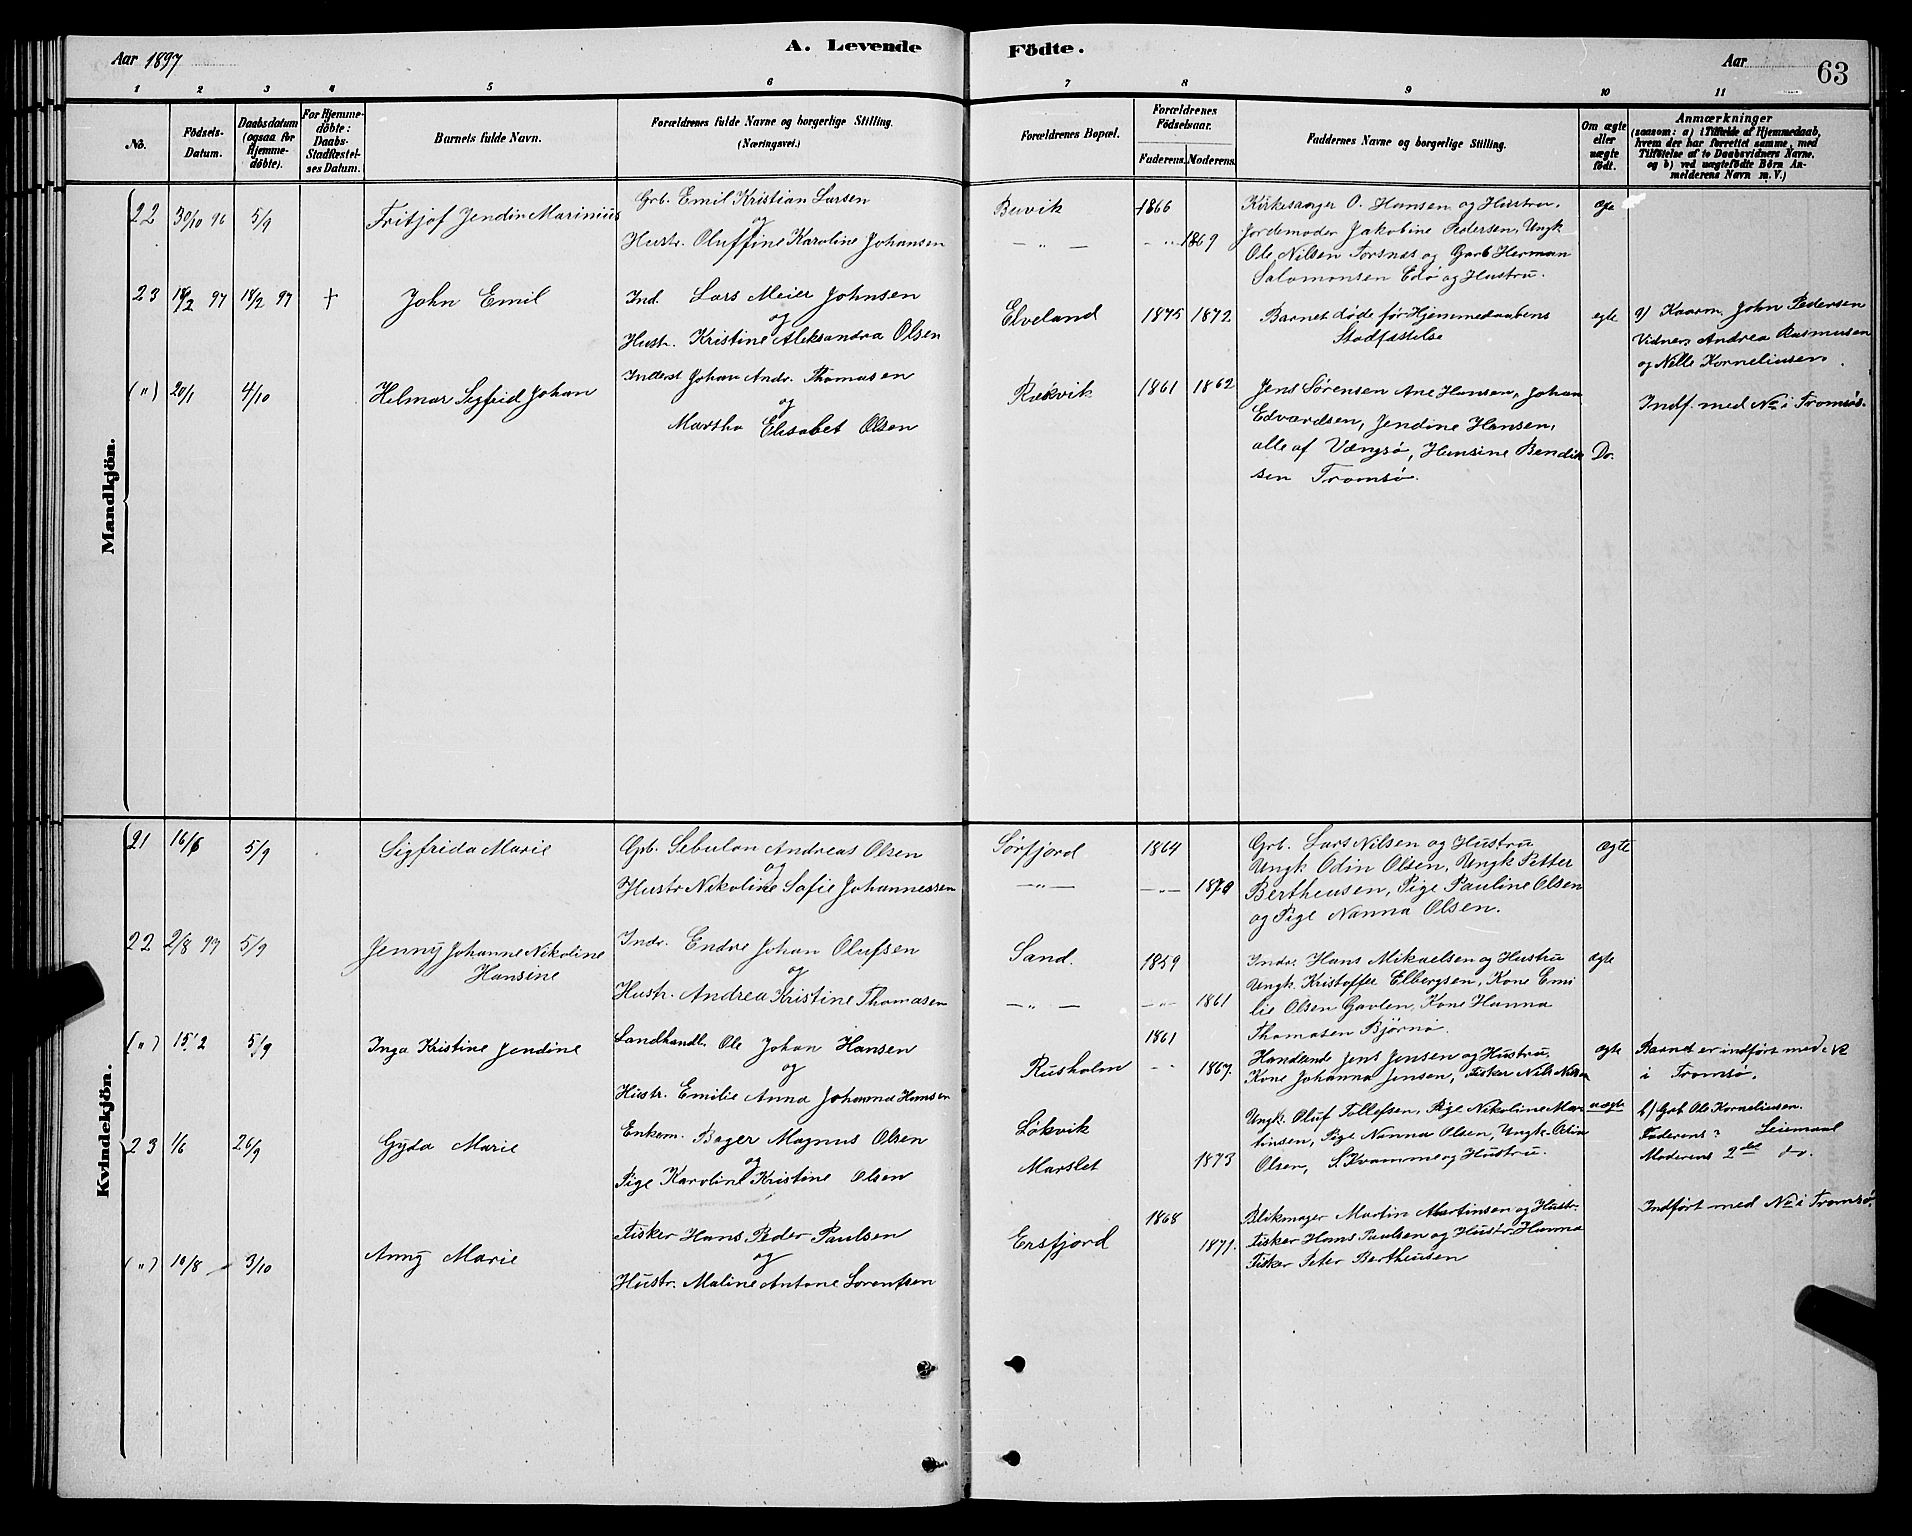 Aar 1897
A. Levende Födte.
Aar
63
1 2 3 4 5 6 7 8 9 10 11
No.
Födsels-Datum.
Daabsdatum (ogsaa for Hjemme-döbte).
For Hjemme-döbte: Daabs-Stadfæstelses Datum.
Barnets fulde Navn.
Forældrenes fulde Navne og borgerlige Stilling.
(Næringsvei.)
Forældrenes Bopæl.
Forældrenes Födselsaar.
Faderens. Moderens.
Faddernes Navne og borgerlige Stilling.
Om ægte eller uægte födt.
Anmærkninger
(saasom: a) i Tilfælde af Hjemmedaab,
hvem der har forrettet samme, med
Tilföielse af to Daabsvidners Navne,
og b) ved uægtefödte Börn An-
melderens Navn m. V.)
Mandkjön.
22 30/10 96 5/9 Fritjof Jendin Marinius
Grb. Emil Kristian Larsen
og
Hustr. Oluffine Karoline Johansen
Buvik 1866
— „ — 1869
Kirkesanger O. Hansen og Hustru,
Jordemoder Jakobine Pedersen, Ungk
Ole Nilsen Torsnes og Garb Herman
Salomonsen Edø og Hustru.
23 18/2 97 18/2 97 + John Emil
Ind. Lars Meier Johnsen
og
Hustr. Kristine Aleksandra Olsen
Elveland 1875 1872
Barnet døde før Hjemmedaabens
Stadfæstelse
egte
a) Kaarm. John Pedersen
Vidner Andrea Rasmusen
og Nelle Korneliusen.
(„) 20/1 4/10 Helmar Sigfrid Johan
Inderst Johan Andr. Thomasen
og
Martha Elisabet Olsen
Rækvik 1861 1862
Jens Sørensen Ane Hansen, Johan
Edvardsen, Jendine Hansen,
alle af Vængsø, Hansine Bendik
sen Tromsø.
Do.
Indf. med No i Tromsø.
Kvindekjön.
21 16/6 5/9 Sigfrida Marie
Gpb. Sebulon Andreas Olsen
og
Hustr Nikoline Sofie Johannessen
Sørfjord 1864
— „ — 1870
Grb. Lars Nilsen og Hustru
Ungk Odin Olsen, Ungk Petter
Bertheusen, Pige Pauline Olsen
og Pige Nanna Olsen.
ægte
22 2/8 97 5/9 Jenny Johanne Nikoline
Hansine
Indr. Endre Johan Olufsen
og
Hustr. Andrea Kristine Thomasen
Sand. 1859
— „ — 1861
Indr. Hans Mikaelsen og Hustru
Ungk. Kristoffer Elbergsen, Kone Emi
lie Olsen Gavlen, Kone Hanna
Thomasen Bjørnø.
ægte
(„) 15/2 5/9 Inga Kristine Jendine
Landhandl. Ole Johan Hansen
og
Hustr. Emilie Anna Johanna Hansen
Rusholm 1861
1867.
Handlende Jens Jensen og Hustru,
Kone Johanna Jensen, Fisker Nils Nilsen
egte
Barnet er indført med No
i Tromsø.
23 1/6 26/9 Gyda Marie
Enkem. Bager Magnus Olsen
og
Pige Karoline Kristine Olsen
Løkvik
Marslet 1873
Ungk. Oluf Tollefsen, Pige Nikoline Mar
tinsen, Pige Nanna Olsen, Ungk. Odin
Olsen, S. Kvamme og Hustru.
uægte
b) Grb Ole Korneliusen.
Faderens ? Leiemaal
Moderens 2det do.
(„) 10/8 3/10 Anny Marie
Fisker Hans Peder Paulsen
og
Hustr. Maline Antone Lorentsen
Ersfjord 1868
1871.
Blikmager Martin Martinsen og Hustr.
Fisker Hans Paulsen og Hustr Hanna
Fisker Peter Bertheusen
Indført med No i Tromsø.